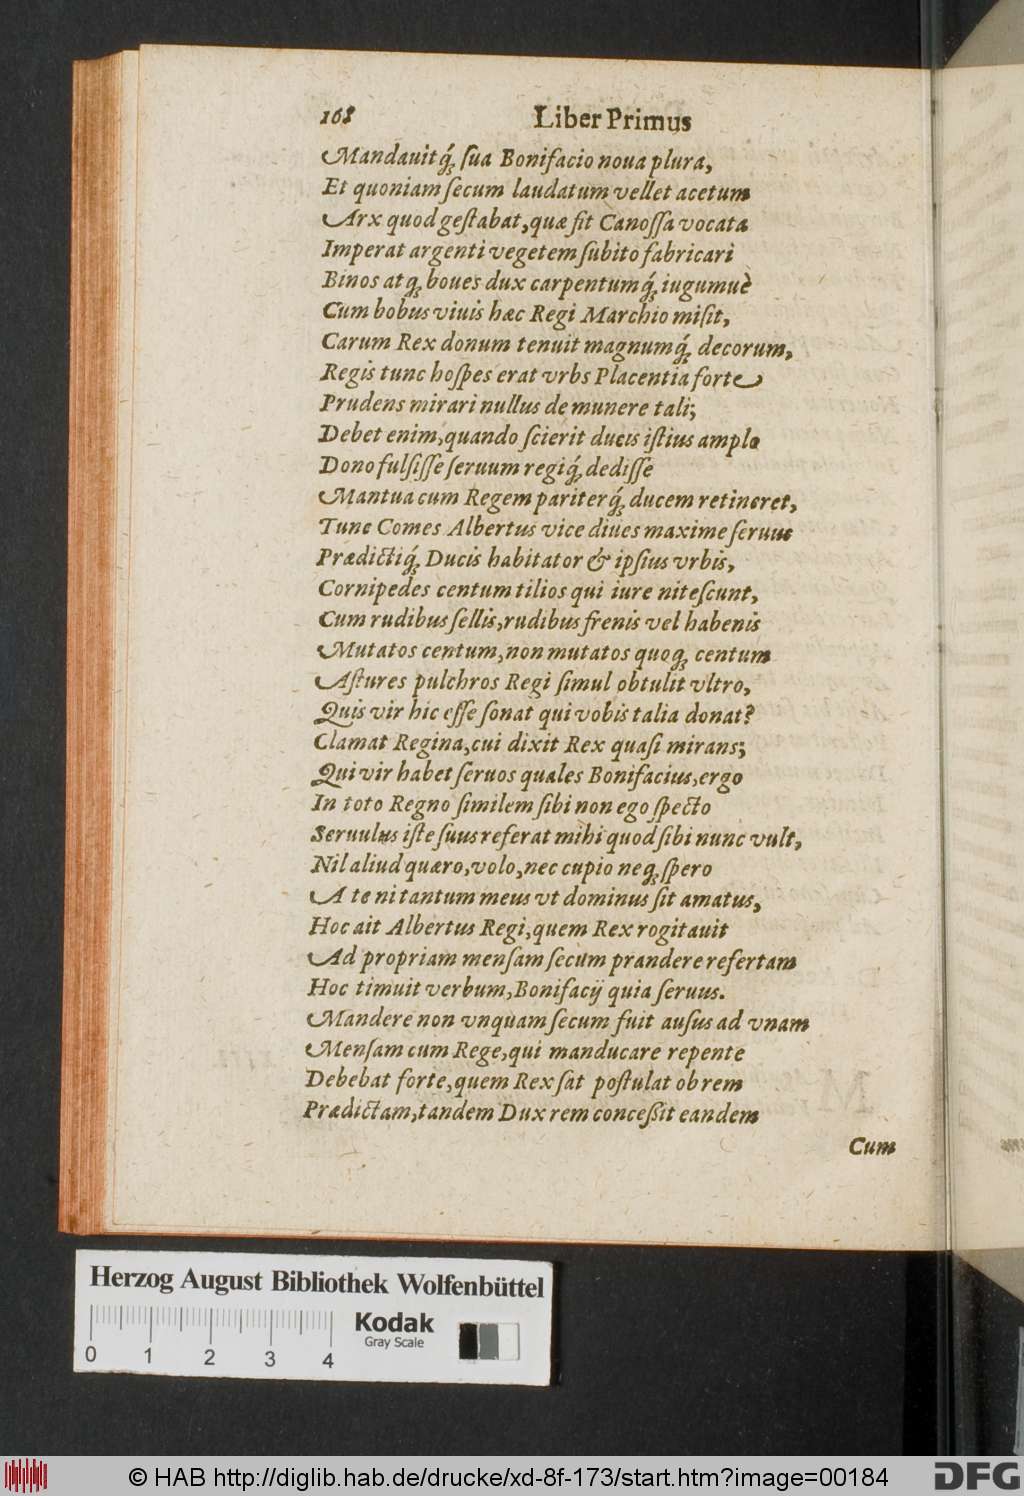 168 Liber Primus
Mandauitq́; ſua Bonifacio noua plura,
Et quoniam ſecum laudatum vellet acetum
Arx quod geſtabat, quæ ſit Canoſſa vocata
Imperat argenti vegetem ſubito fabricari
Binos atq; boues dux carpentumq́; iugumuè
Cum bobus viuis hæc Regi Marchio miſit,
Carum Rex donum tenuit magnumq́; decorum,
Regis tunc hoſpes erat vrbs Placentia forte
Prudens mirari nullus de munere tali;
Debet enim, quando ſcierit ducis iſtius amplo
Dono fulſiſſe ſeruum regiq́; dediſſe
Mantua cum Regem pariterq́; ducem retineret,
Tunc Comes Albertus vice diues maxime ſeruus
Prædictiq́; Ducis habitator & ipſius vrbis,
Cornipedes centum tilios qui iure niteſcunt,
Cum rudibus ſellis, rudibus frenis vel habenis
Mutatos centum, non mutatos quoq; centum
Aſtures pulchros Regi ſimul obtulit vltro,
Quis vir hic eſſe ſonat qui vobis talia donat?
Clamat Regina, cui dixit Rex quaſi mirans;
Qui vir habet ſeruos quales Bonifacius, ergo
In toto Regno ſimilem ſibi non ego ſpecto
Seruulus iſte ſuus referat mihi quod ſibi nunc vult,
Nil aliud quæro, volo, nec cupio neq; ſpero
A te ni tantum meus vt dominus ſit amatus,
Hoc ait Albertus Regi, quem Rex rogitauit
Ad propriam menſam ſecum prandere refertam
Hoc timuit verbum, Bonifacij quia ſeruus.
Mandere non vnquam ſecum fuit auſus ad vnam
Menſam cum Rege, qui manducare repente
Debebat forte, quem Rex ſat poſtulat ob rem
Prædictam, tandem Dux rem conceßit eandem
Cum
Herzog August Bibliothek Wolfenbüttel
Kodak
Gray Scale
0 1 2 3 4
© HAB http://diglib.hab.de/drucke/xd-8f-173/start.htm?image=00184
DFG